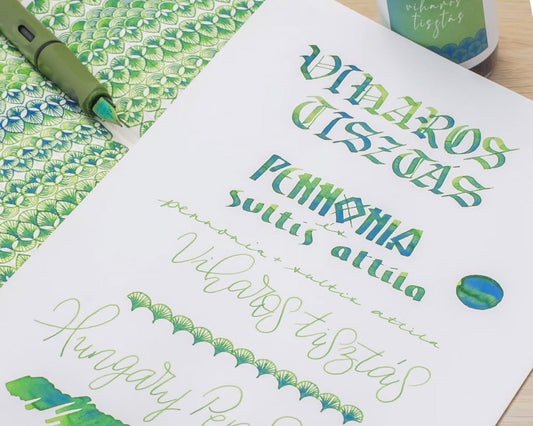 viharos
tisztás
VIHAROS
TISZTÁS
PENNONIA
sultis attila
pennonia + sultis attila
Viharos tisztás
Hungary Pen